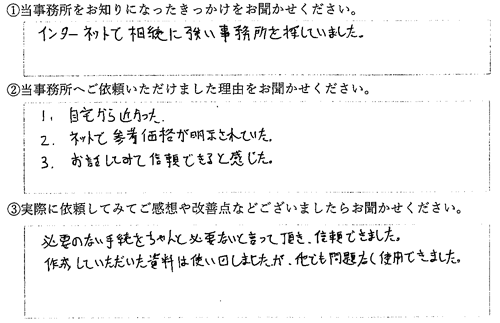 ①当事務所をお知りになったきっかけをお聞かせください。
インターネットで相続に強い事務所を探していました。
②当事務所へご依頼いただけました理由をお聞かせください。
1. 自宅から近かった.
2. ネットで参考価格が明示されていた.
3. お話してみて信頼できると感じた.
③実際に依頼してみてご感想や改善点などございましたらお聞かせください。
必要のない手続をちゃんと必要ないと言って頂き、信頼できました。
作成していただいた資料は使い回しましたが、他でも問題なく使用できました。